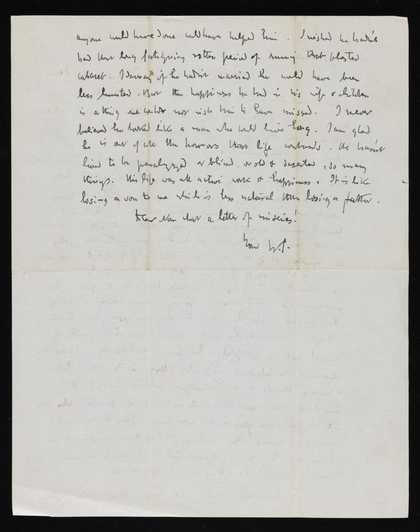 anyone could have done could have helped him. I wished he hadn't
had that long fatiguing rotten period of running that blasted
cabaret. I daresay if he hadn't married he would have been
less hunted. But the happiness he had in his wife & children
is a thing we could not wish him to have missed. I never
believed he looked like a man who would live long. I am glad
he is out of all the horrors that life contains. He hasn't
lived to be paralyzed or blind or old & deserted, so many
things. His life was all active work & happiness. It is like
losing a son to me which is less natural than losing a father.
Dear me what a letter of miseries!